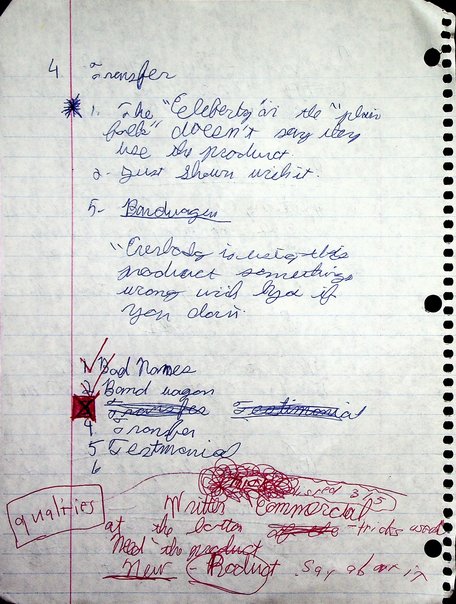 4 Transfer
1. The "Celeberty" or the "plain
folk" doesn't say they
use the product
2- Just shown with it.
5- Bandwagen
"Everbody is using this
product somethings
wrong with you if
you don't.
1 Bad Names
2 Band wagon
Transfer Testimonial
4 Transfer
5 Testimonial
6
used 3 / 5
qualities
Written "Commercial
at the bottom - tricks used
"Need" the product
New - Product. Say about it